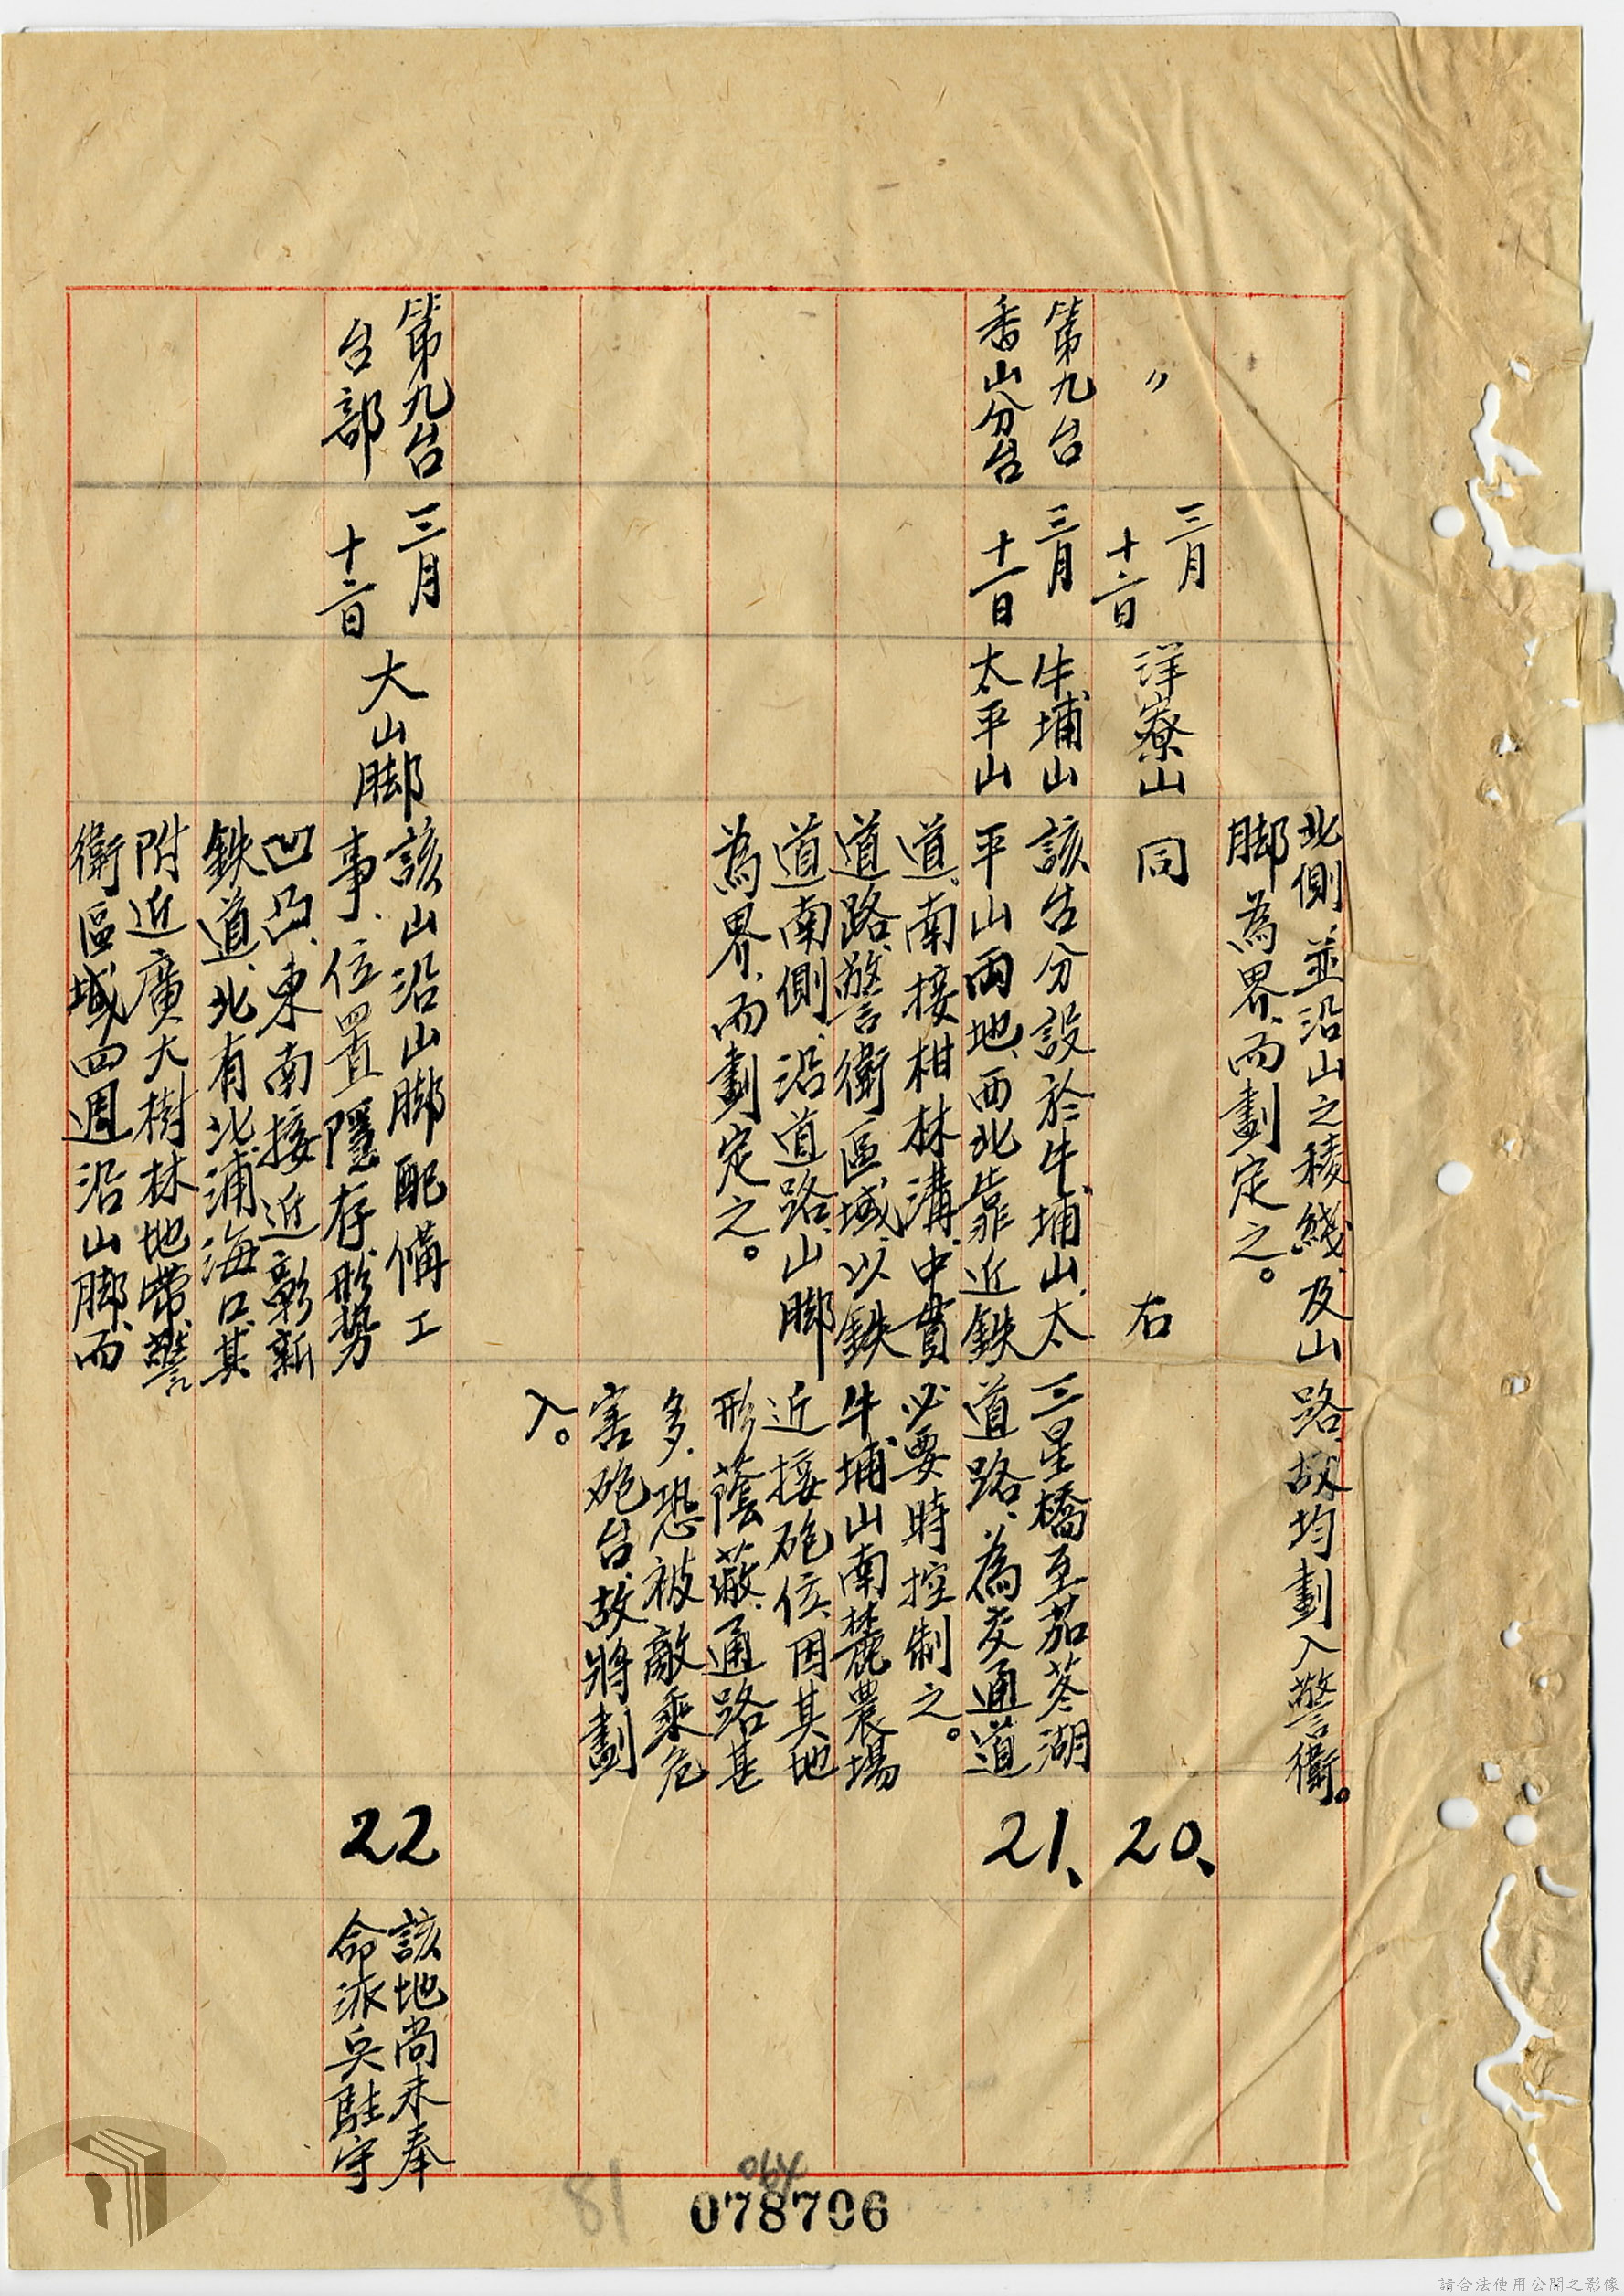 北側、並沿山之稜綫、及山
脚為界、而劃定之。
路、故均劃入警衛。
〃
三月
十二日
洋寮山
同 右
20、
第九台
香山分台
三月
十一日
牛埔山
太平山
該台分設於牛埔山、太
平山兩地、西北靠近鉄
道、南接柑林溝、中貫
道路、警衛區域、以鉄
道南側、沿道路、山脚
為界、而劃定之。
三星橋至茄苳湖
道路、為交通道
必要時控制之。
牛埔山南麓農場
近接砲位、因其地
形蔭蔽、通路甚
多、恐被敵乘危
害砲台、故將劃
入。
21、
第九台
台部
三月
十二日
大山脚
該山沿山脚配備工
事、位置隱存、形勢
凹凸、東南接近彰新
鉄道、北有北浦海口、其
附近廣大樹林地帶、警
衛區域、四週沿山脚、而
22
該地尚未奉
命派兵駐守
81
078706
請合法使用公開之影像